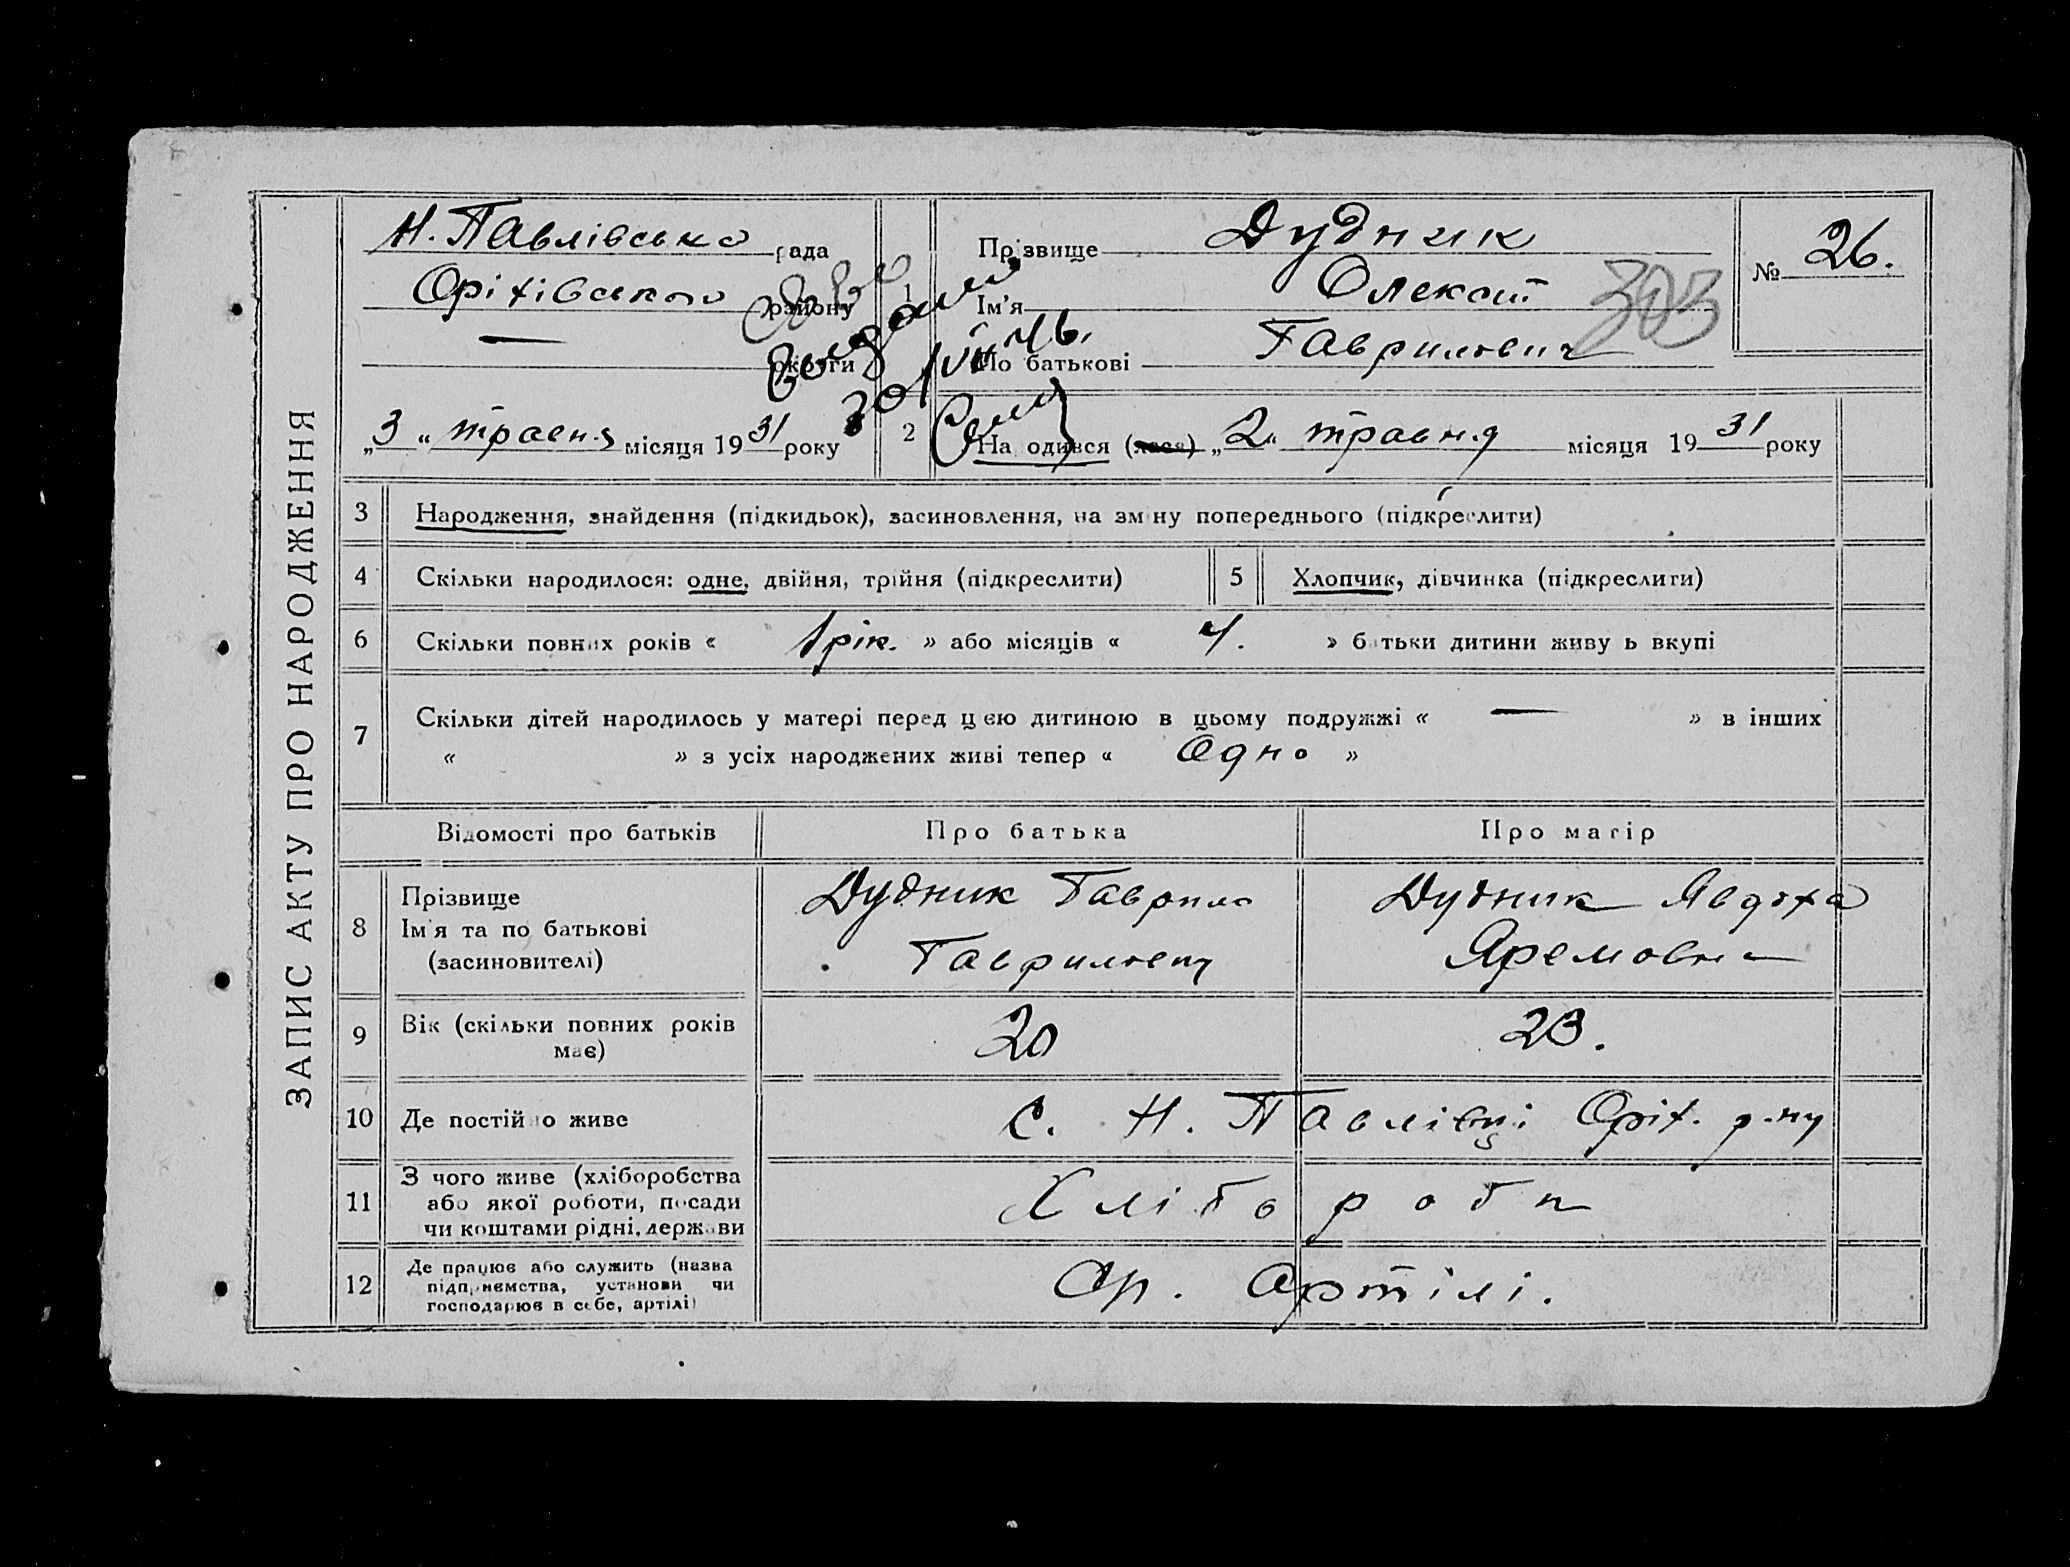 ЗАПИС АКТУ ПРО НАРОДЖЕННЯ
Н. Павлівська рада
Оріхівського району
— округи
„3“ травня місяця 1931 року
1
Прізвище Дудник
Ім'я Олексій
По батькові Гаврилович
№ 26.
303
30/VII 46.
2
На одився (лася) „2“ травня місяця 1931 року
3 Народження, знайдення (підкидьок), засиновлення, на зміну попереднього (підкреслити)
4 Скільки народилося: одне, двійня, трійня (підкреслити)
5 Хлопчик, дівчинка (підкреслити)
6 Скільки повних років « 1 рік. » або місяців « 4. » батьки дитини живу ь вкупі
7 Скільки дітей народилось у матері перед цією дитиною в цьому подружжі « — » в інших
« » з усіх народжених живі тепер « Одно »
Відомості про батьків Про батька Про матір
8 Прізвище
Ім'я та по батькові
(засиновителі)
Дудник Гаврило
Гаврилович
Дудник Явдоха
Яремовна
9 Вік (скільки повних років
має)
20 23.
10 Де постійно живе С. Н. Павлівці Оріх. р-ну
11 З чого живе (хліборобства
або якої роботи, посади
чи коштами рідні, держави
Хлібороби
12 Де працює або служить (назва
підприємства, установи чи
господарює в себе, артілі)
Ор. Артілі.